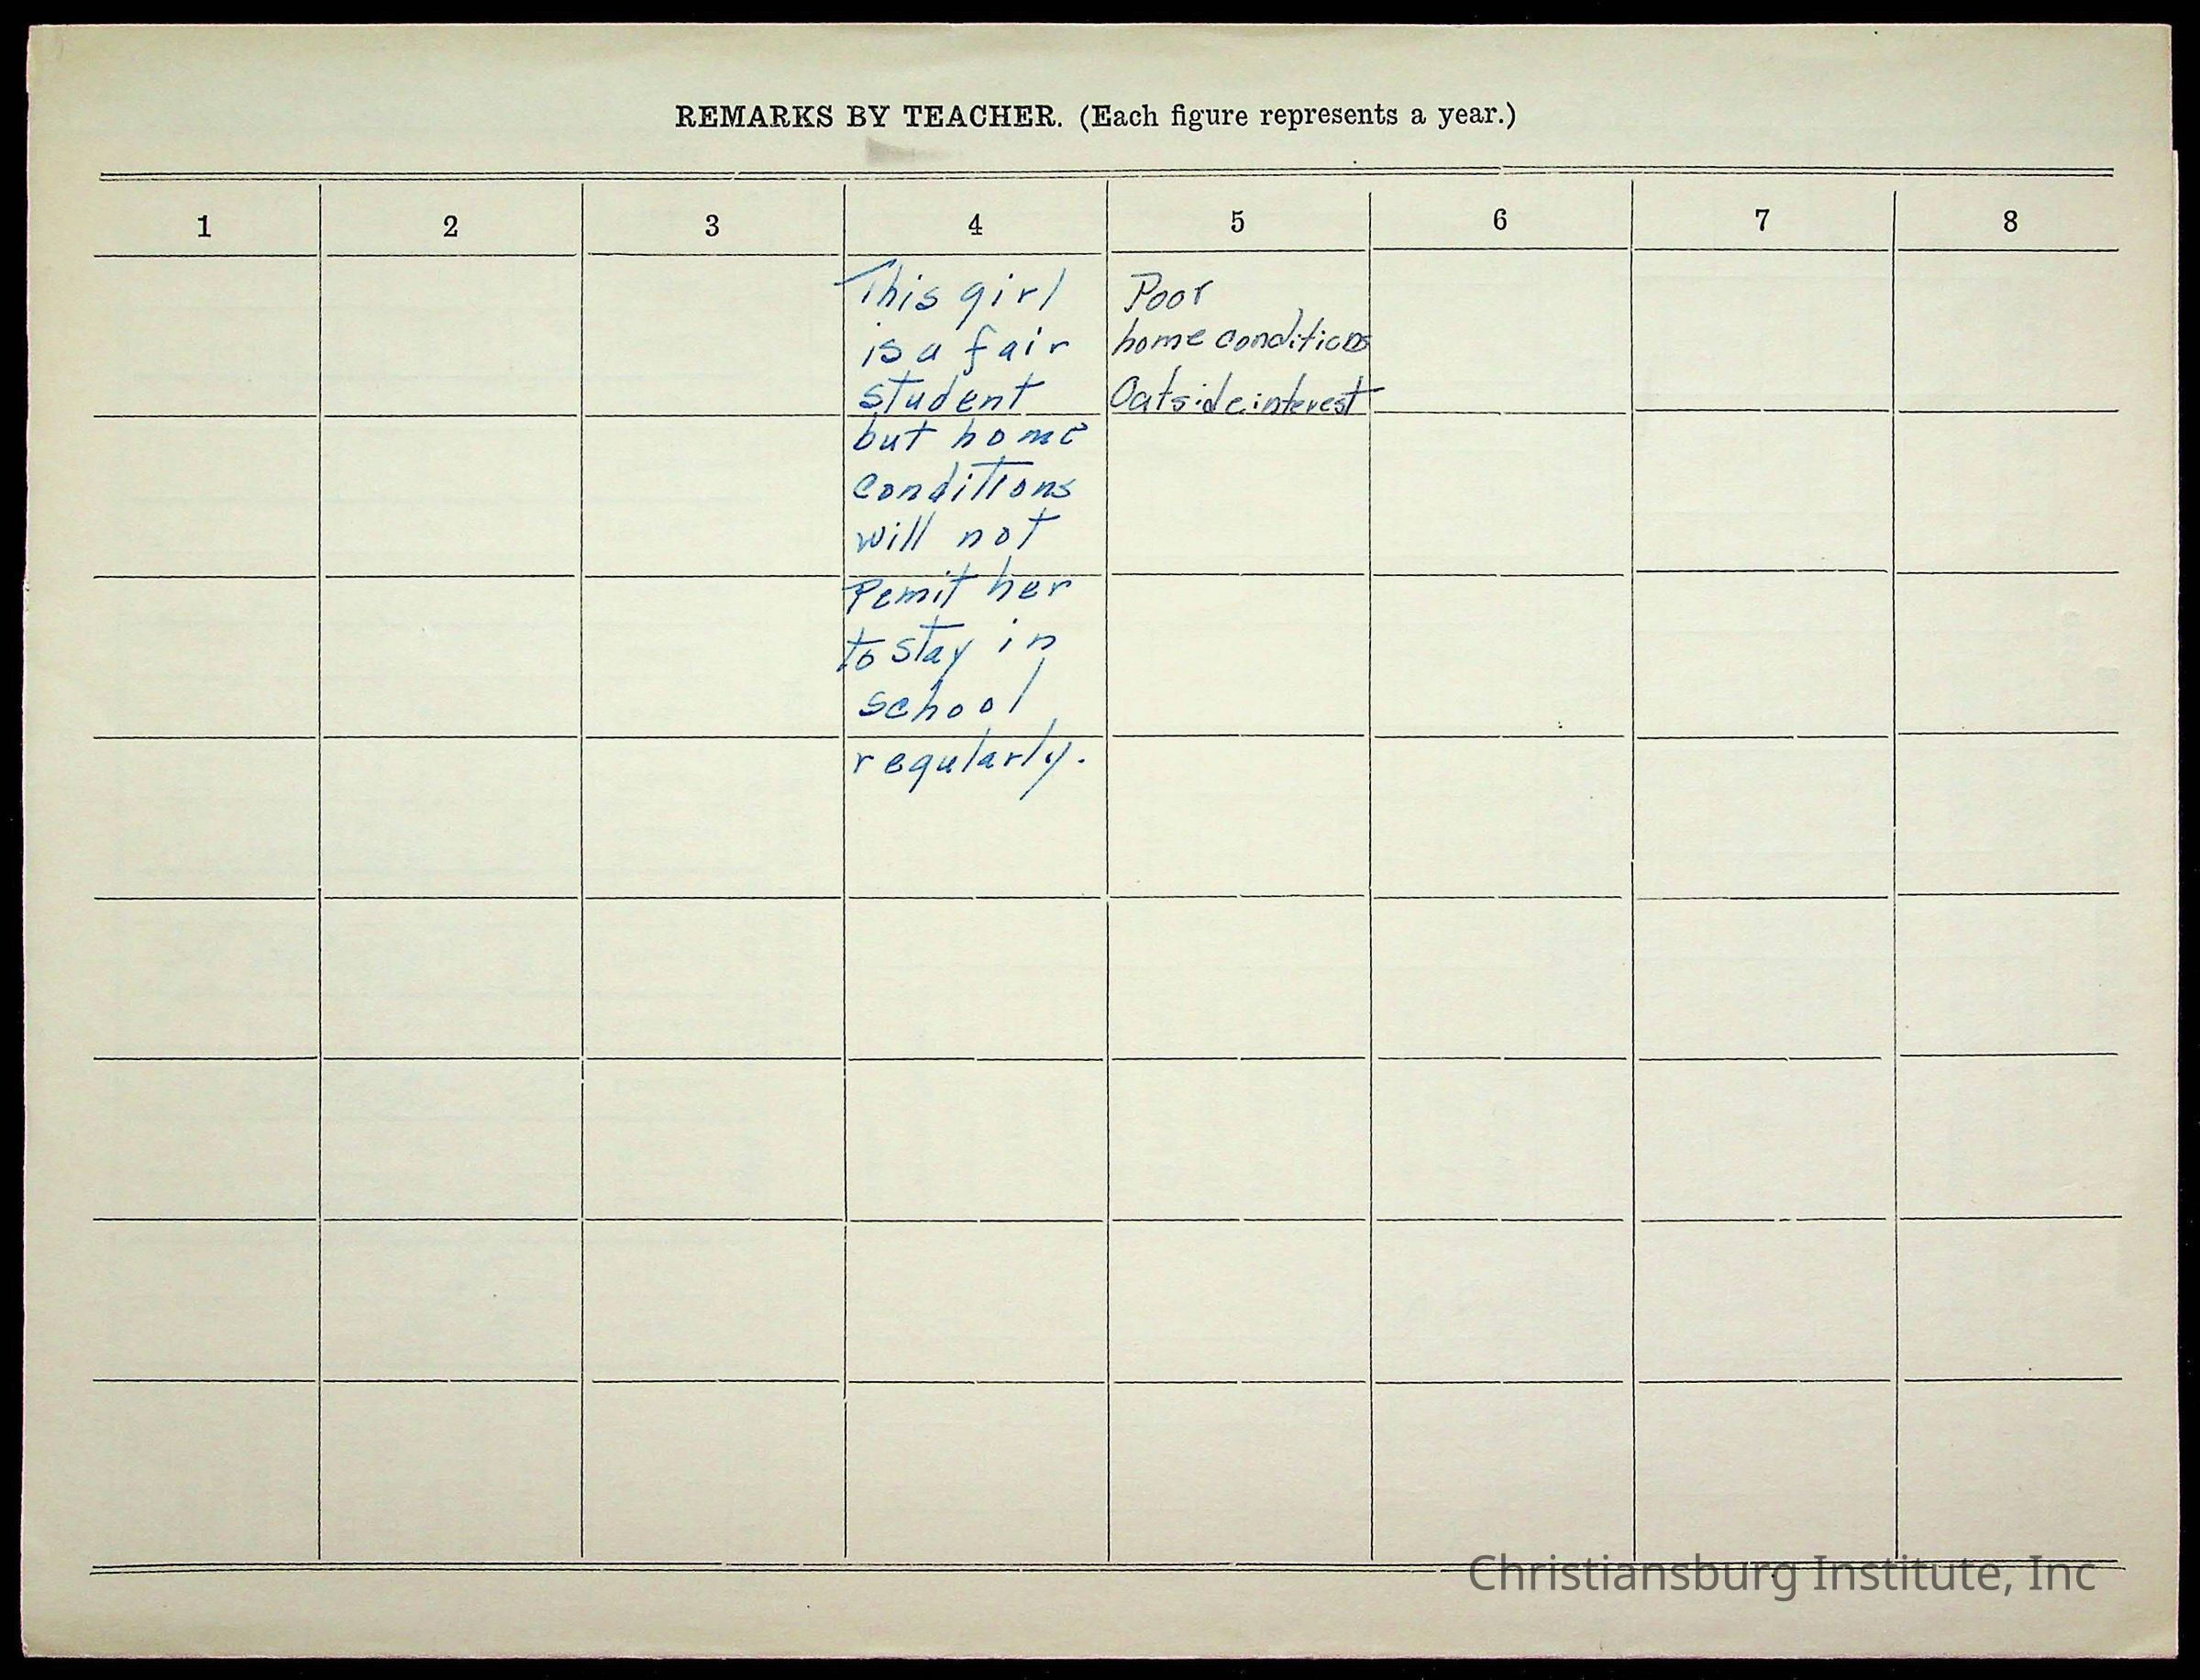 REMARKS BY TEACHER. (Each figure represents a year.)
1 2 3 4 5 6 7 8
This girl
is a fair
student
but home
conditions
will not
Pemit her
to stay in
school
regularly.
Poor
home conditions
Outside interest
Christiansburg Institute, Inc